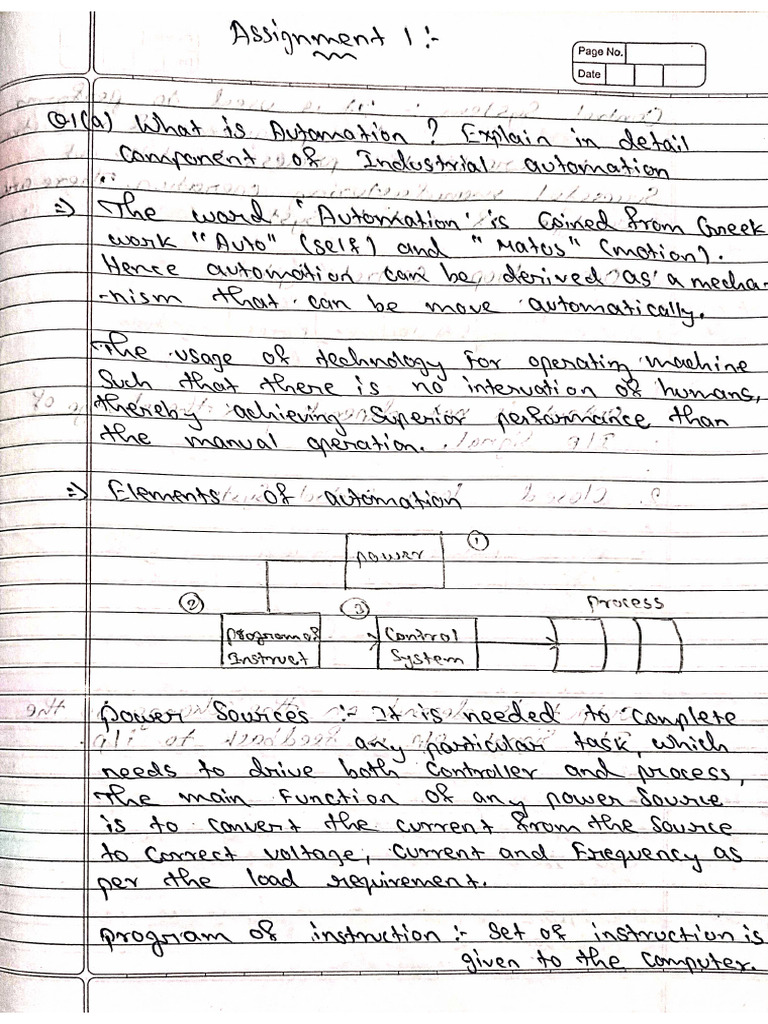 Assignment 1 :-
Page No.
Date
Q1(a) What is Automation ? Explain in detail
component of Industrial automation
=> The word 'Automation' is Coined from Greek
work "Auto" (self) and "Matos" (motion).
Hence automation can be derived as a mecha-
-nism that can be move automatically.
The usage of technology for operating machine
Such that there is no intervation of humans,
thereby achieving superior performance than
the manual operation.
=> Elements of automation
power ①
② ③ Process
program of Control
Instruct System
power Sources :- It is needed to complete
any particular task, which
needs to drive both controller and process,
The main function of any power source
is to convert the current from the source
to correct voltage, current and frequency as
per the load requirement.
program of instruction :- set of instruction is
given to the computer.